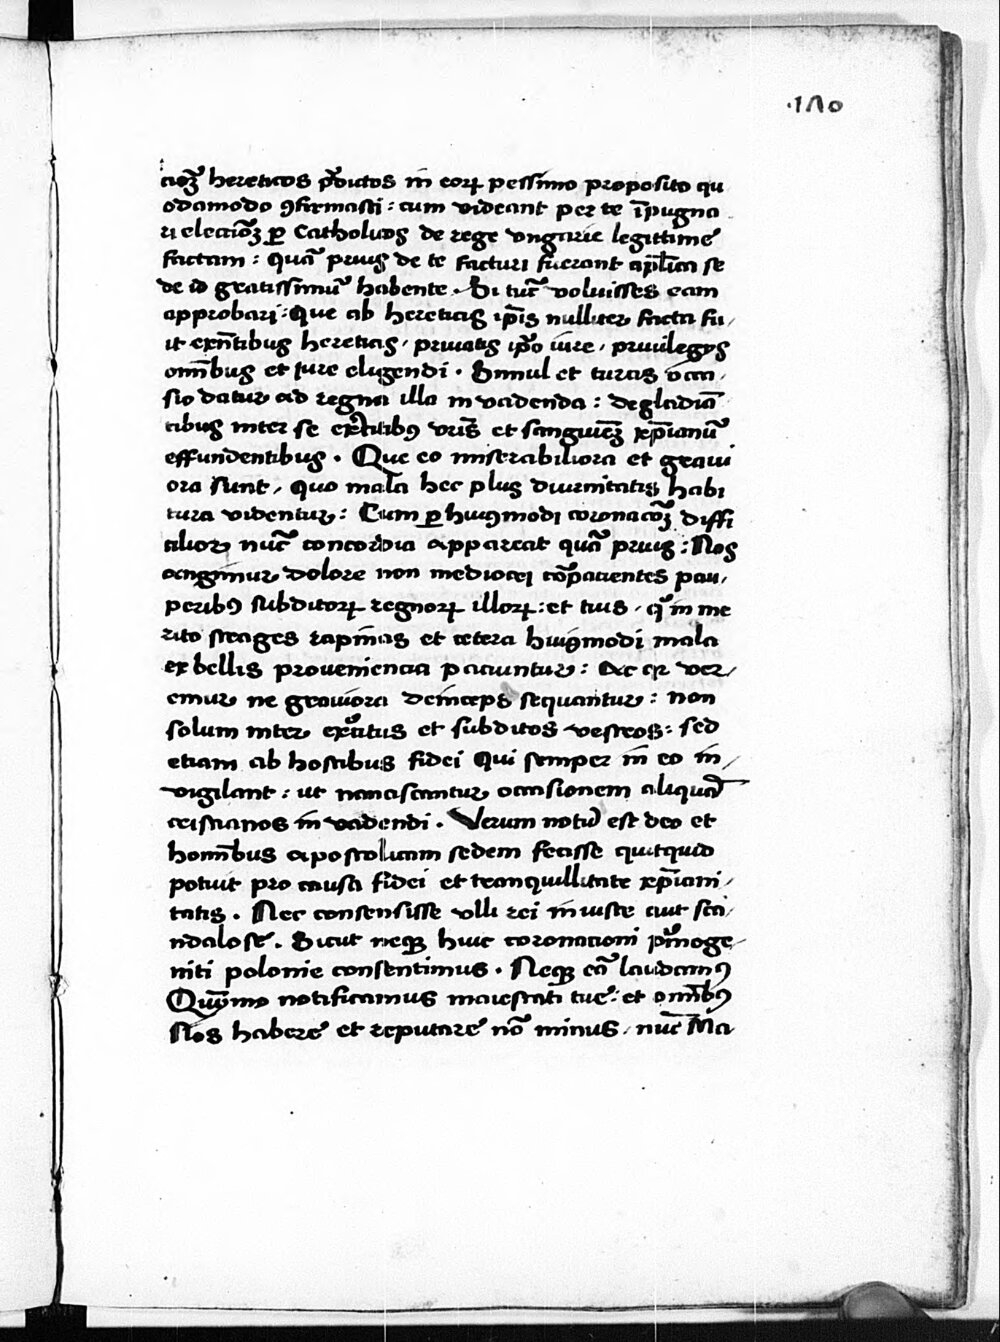 ·180
cioꝫ hereticos p̃dictos in eorꝝ pessimo proposito qu
odamodo ꝯfirmasti : cum videant per te īpugna
ri electiõꝫ ꝑ Catholicos de rege vngarie legittime
factam : quã prius de te facturi fuerant apl̃ica se
de id gratissimũ habente . Si tũc voluisses eam
approbari : Que ab hereticis ip̃is nulliter facta fu/
it exñtibus hereticis / priuatis ip̃o iure / priuilegijs
om̃ibus et iure eligendi . Simul et turcis occa/
sio datur ad regna illa inuadenda : degladiã
tibus inter se ex̃citibꝰ vr̃is et sanguineꝫ xp̃ianũ
effundentibus . Que eo miserabiliora et graui
ora sunt / quo mala hec plus diurnitatis habi
tura videntur : Cum ꝑ huiꝰmodi coronacõꝫ diffi
cilior nũc concordia appareat quã prius : Nos
angimur dolore non mediocri cõpacientes pau/
peribꝰ subditorꝝ regnorꝝ illorꝝ : et tuis / qͥ in me
rito strages rapinas et cetera huiꝰmodi mala
ex bellis prouenientia paciuntur : Ac ver/
emur ne grauiora deinceps sequantur : non
solum inter ex̃citus et subditos vestros : sed
etiam ab hostibus fidei qui semper in eo in/
vigilant : ut nanciscantur occasionem aliquã
cristianos inuadendi . Verum notũ est deo et
hom̃ibus apostolicam sedem fecisse quitquid
potuit pro causa fidei et tranquillitate xp̃iani/
tatis . Nec consensisse vlli rei iniuste aut sca/
ndalose . Sicut neqꝫ huic coronacioni p̃moge/
niti polonie consentimus . Neqꝫ eã laudamꝰ
Quỹmo notificamus maiestati tue : et om̃ibꝰ
Nos habere et reputare nõ minus / nũc Ma